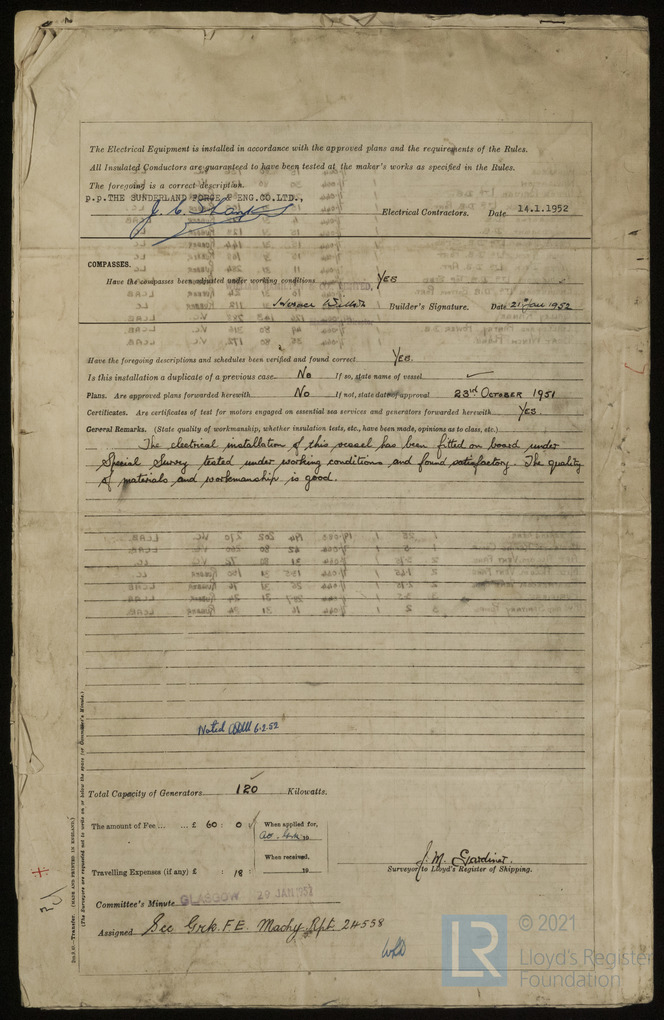 The Electrical Equipment is installed in accordance with the approved plans and the requirements of the Rules.
All Insulated Conductors are guaranteed to have been tested at the maker's works as specified in the Rules.
The foregoing is a correct description.
p.p.THE SUNDERLAND FORGE & ENG.CO.LTD.,
Electrical Contractors. Date 14.1.1952
COMPASSES.
Have the compasses been adjusted under working conditions YES
Builder's Signature. Date 21st Jan 1952
Have the foregoing descriptions and schedules been verified and found correct YES.
Is this installation a duplicate of a previous case No If so, state name of vessel
Plans. Are approved plans forwarded herewith No If not, state date of approval 23rd OCTOBER 1951
Certificates. Are certificates of test for motors engaged on essential sea services and generators forwarded herewith YES
General Remarks. (State quality of workmanship, whether insulation tests, etc., have been made, opinions as to class, etc.)
The electrical installation of this vessel has been fitted on board under
Special Survey tested under working conditions and found satisfactory. The quality
of materials and workmanship is good.
Noted 6.2.52
Total Capacity of Generators 120 Kilowatts.
The amount of Fee ... ... £ 60 : 0 When applied for,
19
When received,
Travelling Expenses (if any) £ : 18 : 19
J. M. Gardiner.
Surveyor to Lloyd's Register of Shipping.
Committee's Minute GLASGOW 29 JAN 1952
Assigned See Grk. F.E. Machy Rpt. 24558
(MADE AND PRINTED IN ENGLAND.)
(The Surveyors are requested not to write on or below the space for Committee's Minute.)
© 2021
LR
Lloyd's Register
Foundation